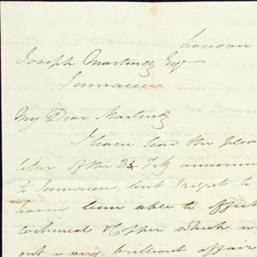 London
Joseph Martinez Esqr
Jamaica
My Dear Martinez
I have had the plea
letter of the 24 July announc
to Jamaica, but regret to
having been able to effect
Copper which w
out a very brilliant affair